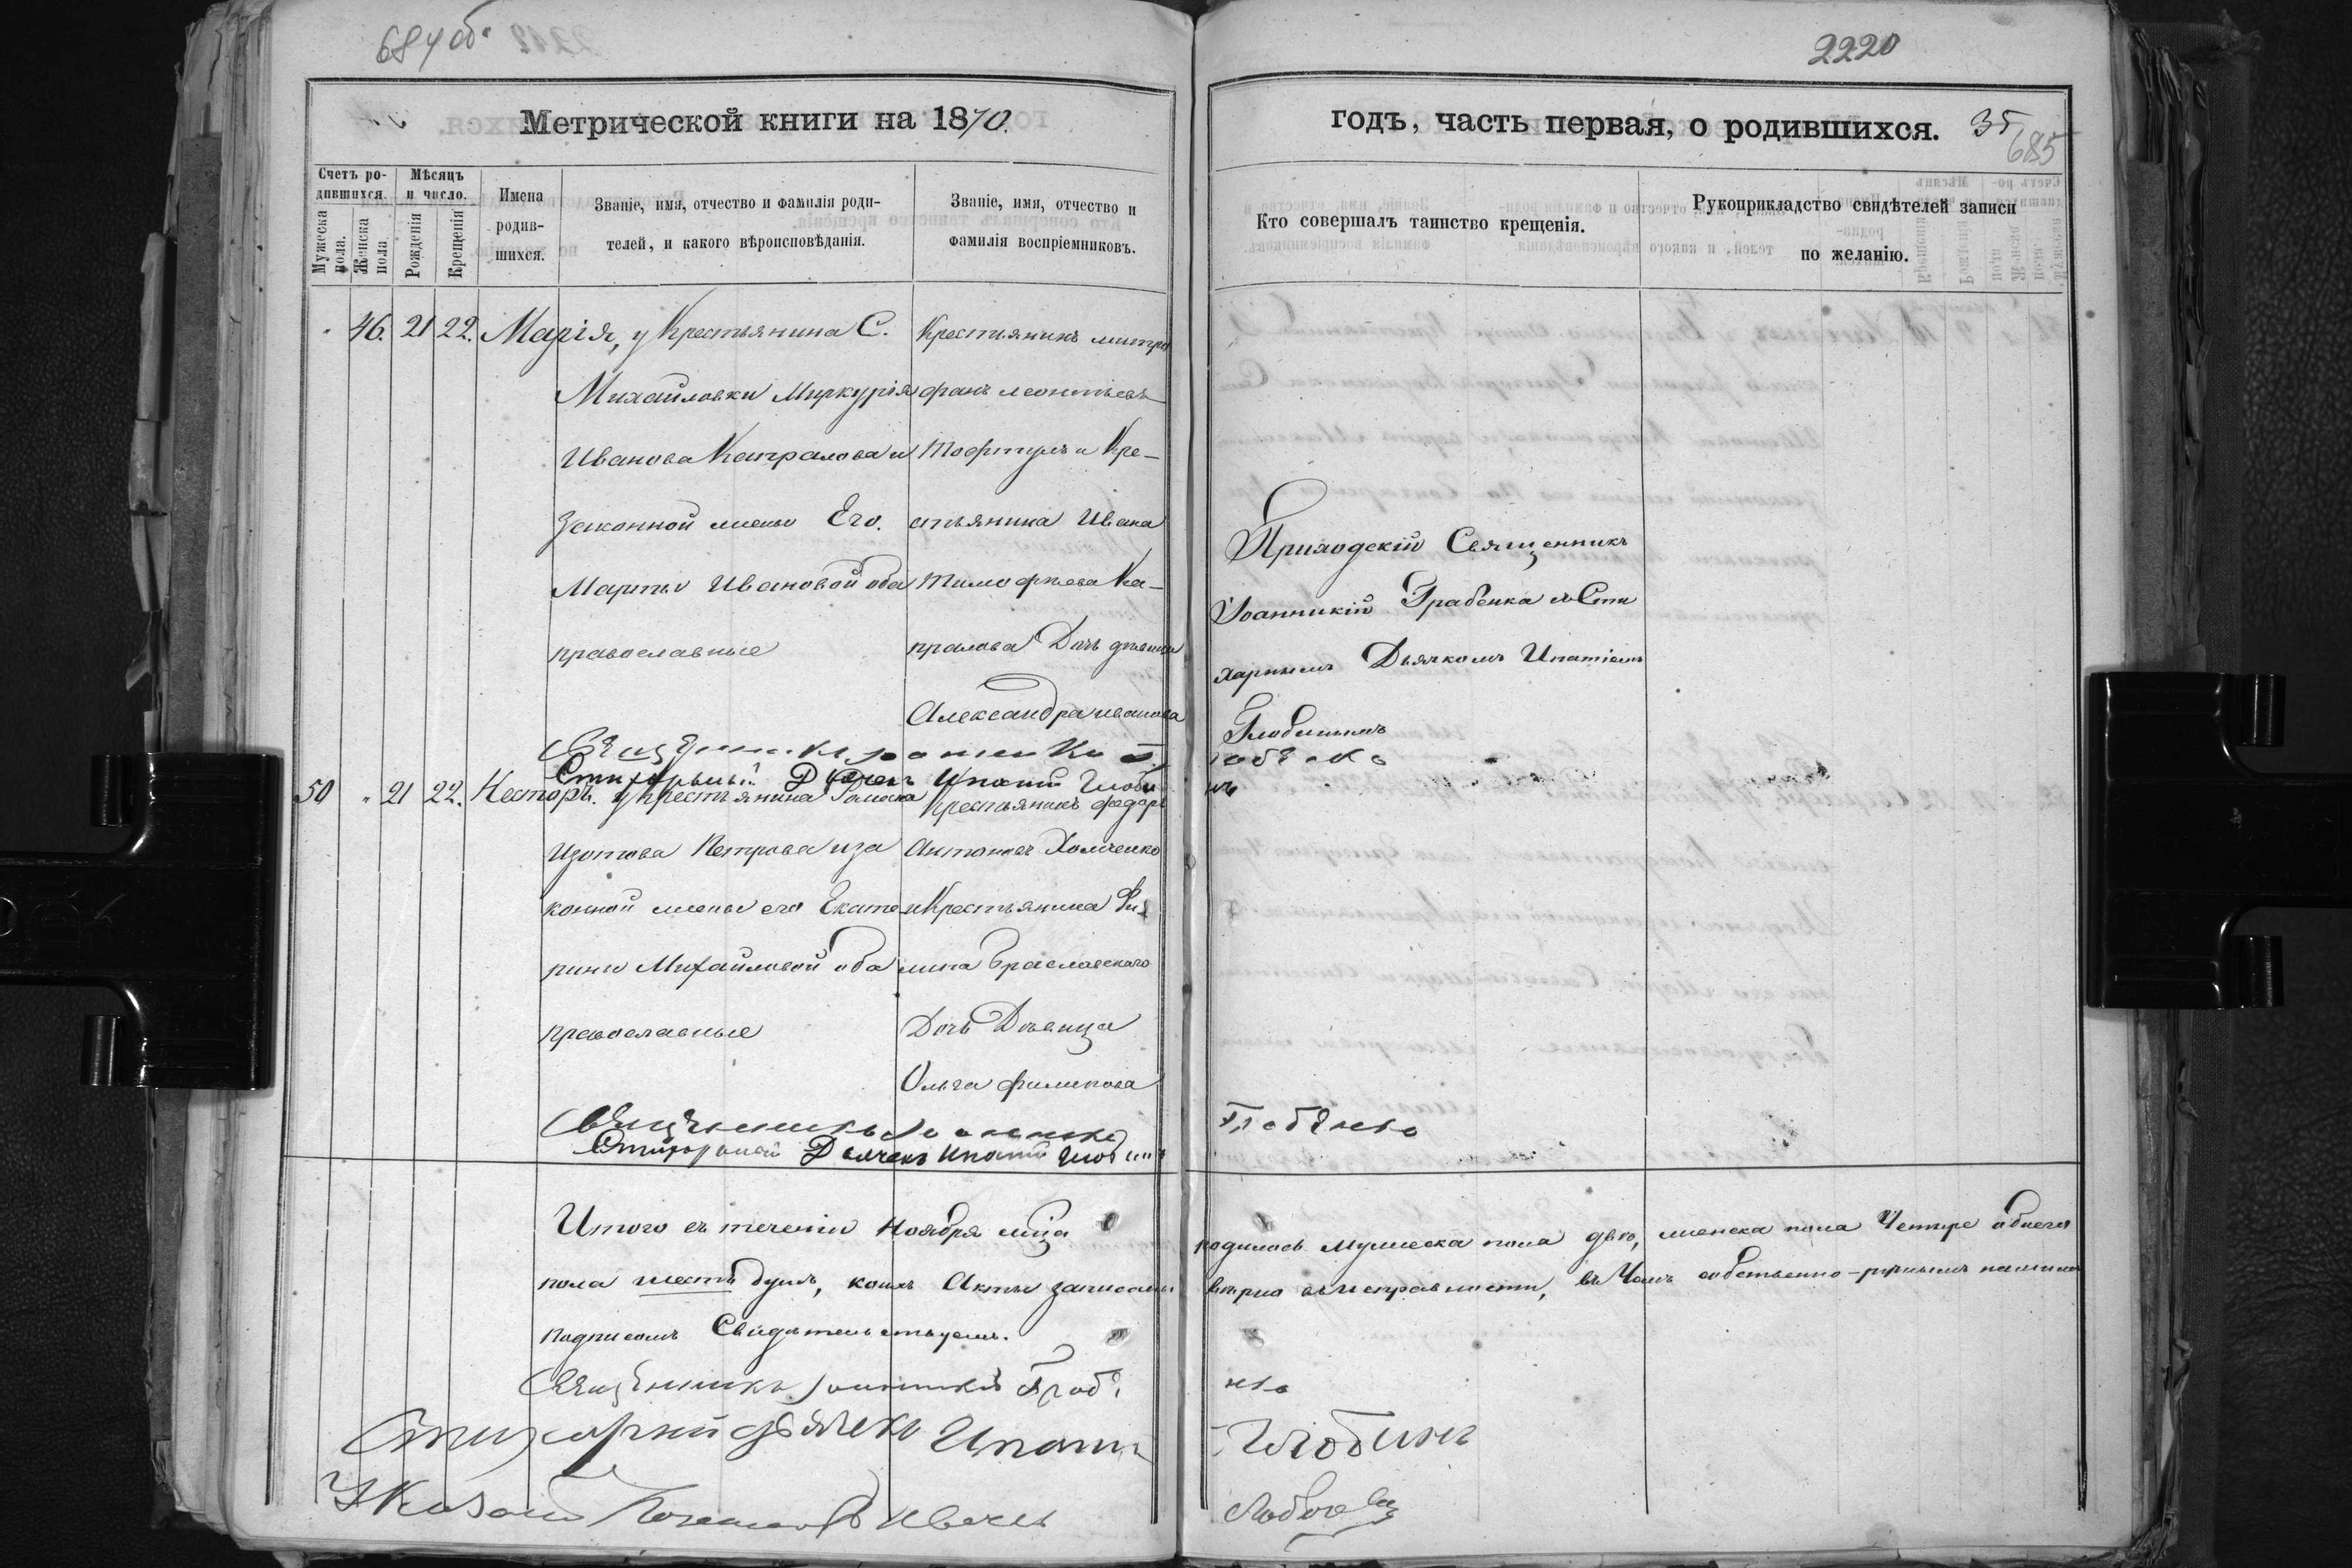 684 об.
2220
Метрической книги на 1870.
годъ, часть первая, о родившихся. 35
685
Счетъ родившихся.
Мужеска пола.
Женска пола.
Мѣсяцъ и число.
Рожденія
Крещенія
Имена родившихся.
Званіе, имя, отчество и фамилія родителей, и какого вѣроисповѣданія.
Званіе, имя, отчество и фамилія воспріемниковъ.
Кто совершалъ таинство крещенія.
Рукоприкладство свидѣтелей записи по желанію.
46. 21 22. Марія, у Крестьянина С.
Михайловки Миркурія
Иванова Капралова и
Законной жены Его.
Марты Ивановой оба
православные
Крестьянинъ митро
фанъ леонтьевъ
и Кре-
стьянина Ивана
Тимофѣева Ка-
пралова Дочь дѣвица
Александра иванова
Приходскій Священникъ
Іоанникій Грабенка с Сти
харнымъ Дьячкомъ Ипатіемъ
Глобинымъ
Стихарный Дьячекъ Ипатій Глоби
нъ
50 21 22. Несторъ. у крестьянина Романа
Изотова Петрова и за
конной жены его Екате
рины Михайловой оба
православные
Крестьянинъ федоръ
Антоновъ Холченко
и Крестьянина Фи-
липа Браславскаго
Дочь Дѣвица
Ольга филипова
Священникъ Іоанникій
Грабенко
Стихарный Дьячекъ Ипатій Глобинъ
Итого въ теченіи Ноября мца
родилось Мужеска пола двое, женска пола Четыре обоего
пола шесть душъ, коихъ Акты записаны
вѣрно въ исправности, въ Чемъ собственно-ручнымъ нашимъ
подписомъ Свидѣтельствуемъ.
Священникъ Іоанникій Грабе
нко
Стихарный дьячекъ Ипатій
Глобинъ